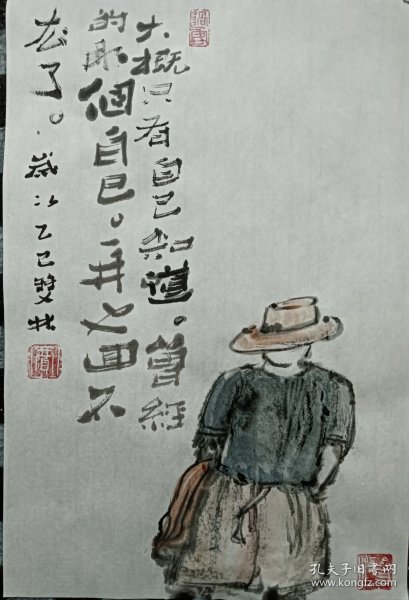 大概只有自己知道。曾經
的那個自己。再也回不
去了。歲次乙巳雙
孔夫子旧书网
www.kongfz.com